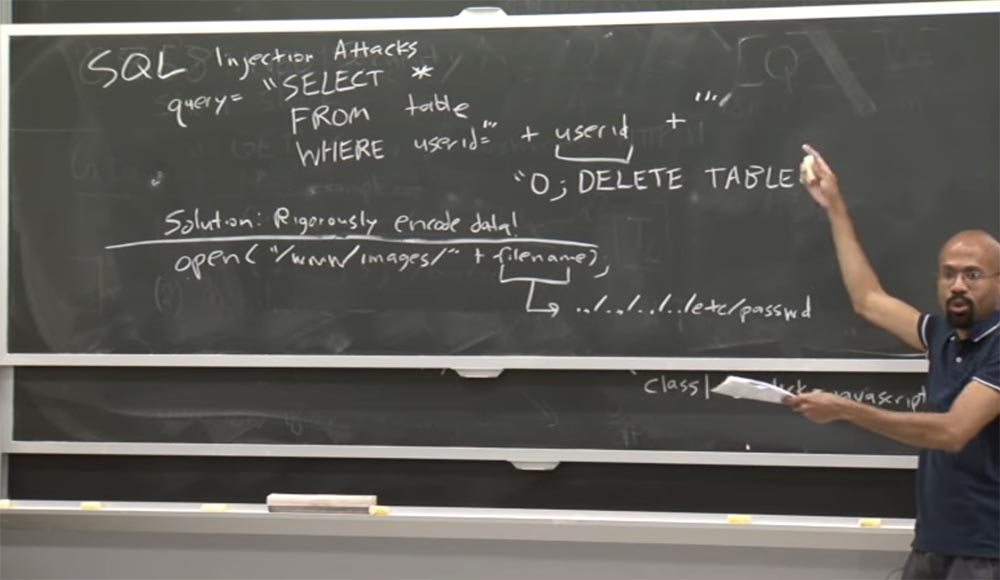 SQL Injection Attacks
query= "SELECT *
FROM table
WHERE userid='" + userid + "'"
"0; DELETE TABLE
Solution: Rigorously encode data!
open("/www/images/" + filename);
../../../../etc/passwd
class javascript